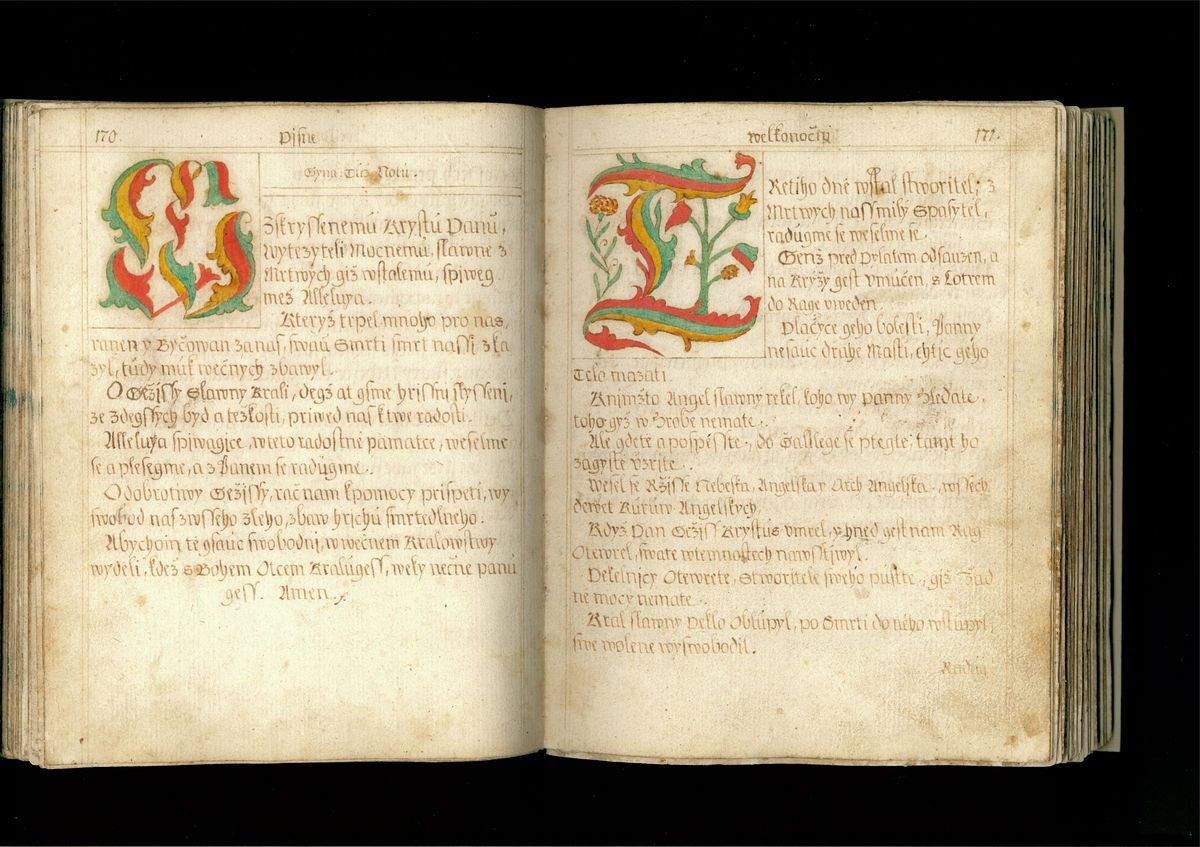 170.
Pjsnie
Gyna: Túž Notú.
W
Zkryssenemú Krystú Panú,
Wytezyteli Mocnemú, slawne z
Mrtwych giž wstalemú, spiweg
mež Alleluya.
Kteryž trpel mnoho pro nas,
ranen y Byčowan za nas, swaú Smrti smrt nassi zka
zyl, túdy múk wečnych zbawyl.
O Gežissy Slawny Krali, degž at gsme hrissni slysseni,
ze zdegssych byd a težkosti, priwed nas k twe radosti.
Alleluya spiwagice, w teto radostne pamatce, weselme
se a plesegme, a z Panem se radúgme.
O dobrotiwy Gežissy, rač nam k pomocy prispeti, wy
swobod nas zwsseho zleho, zbaw hrichú smrtedlneho.
Abychom te gsauc swobodni, w wečnem Kralowstwy
wydeli, kdež s Bohem Otcem Kralúgess, weky wečne panú
gess. Amen.
welkonočnj
171.
T
Retiho dne wstal stworitel, z
Mrtwych nass milý Spasytel,
radúgme se weselme se.
Genž pred Pylatem odsauzen, a
na Kryžy gest Vmúčen, s Lotrem
do Rage vweden.
Plačyce geho bolesti, Panny
nesauc drahe Masti, chtic geho
Telo mazati.
Knimžto Angel slawny rekel, koho wy Panny Hledate,
toho gyž w Hrobe nemate.
Ale gdete a pospěšte, do Galilege se ptegte, tamt ho
zagyste vzrite.
Wesel se Ržisse Nebeska, Angelska y Arch Angelska, wssech
dewet Kúrúw Angelskych,
Když Pan Gežiss Krystus vmrel, y hned gest nam Rag
Otewrel, swate w temnostech nawsstjwyl.
Pekelnicy Otewrete, Stworitele sweho pustte, giž žad
ne mocy nemate.
Kral slawny Peklo Oblúpyl, po Smrti do neho wstúpyl,
swe wolene wyswobodil.